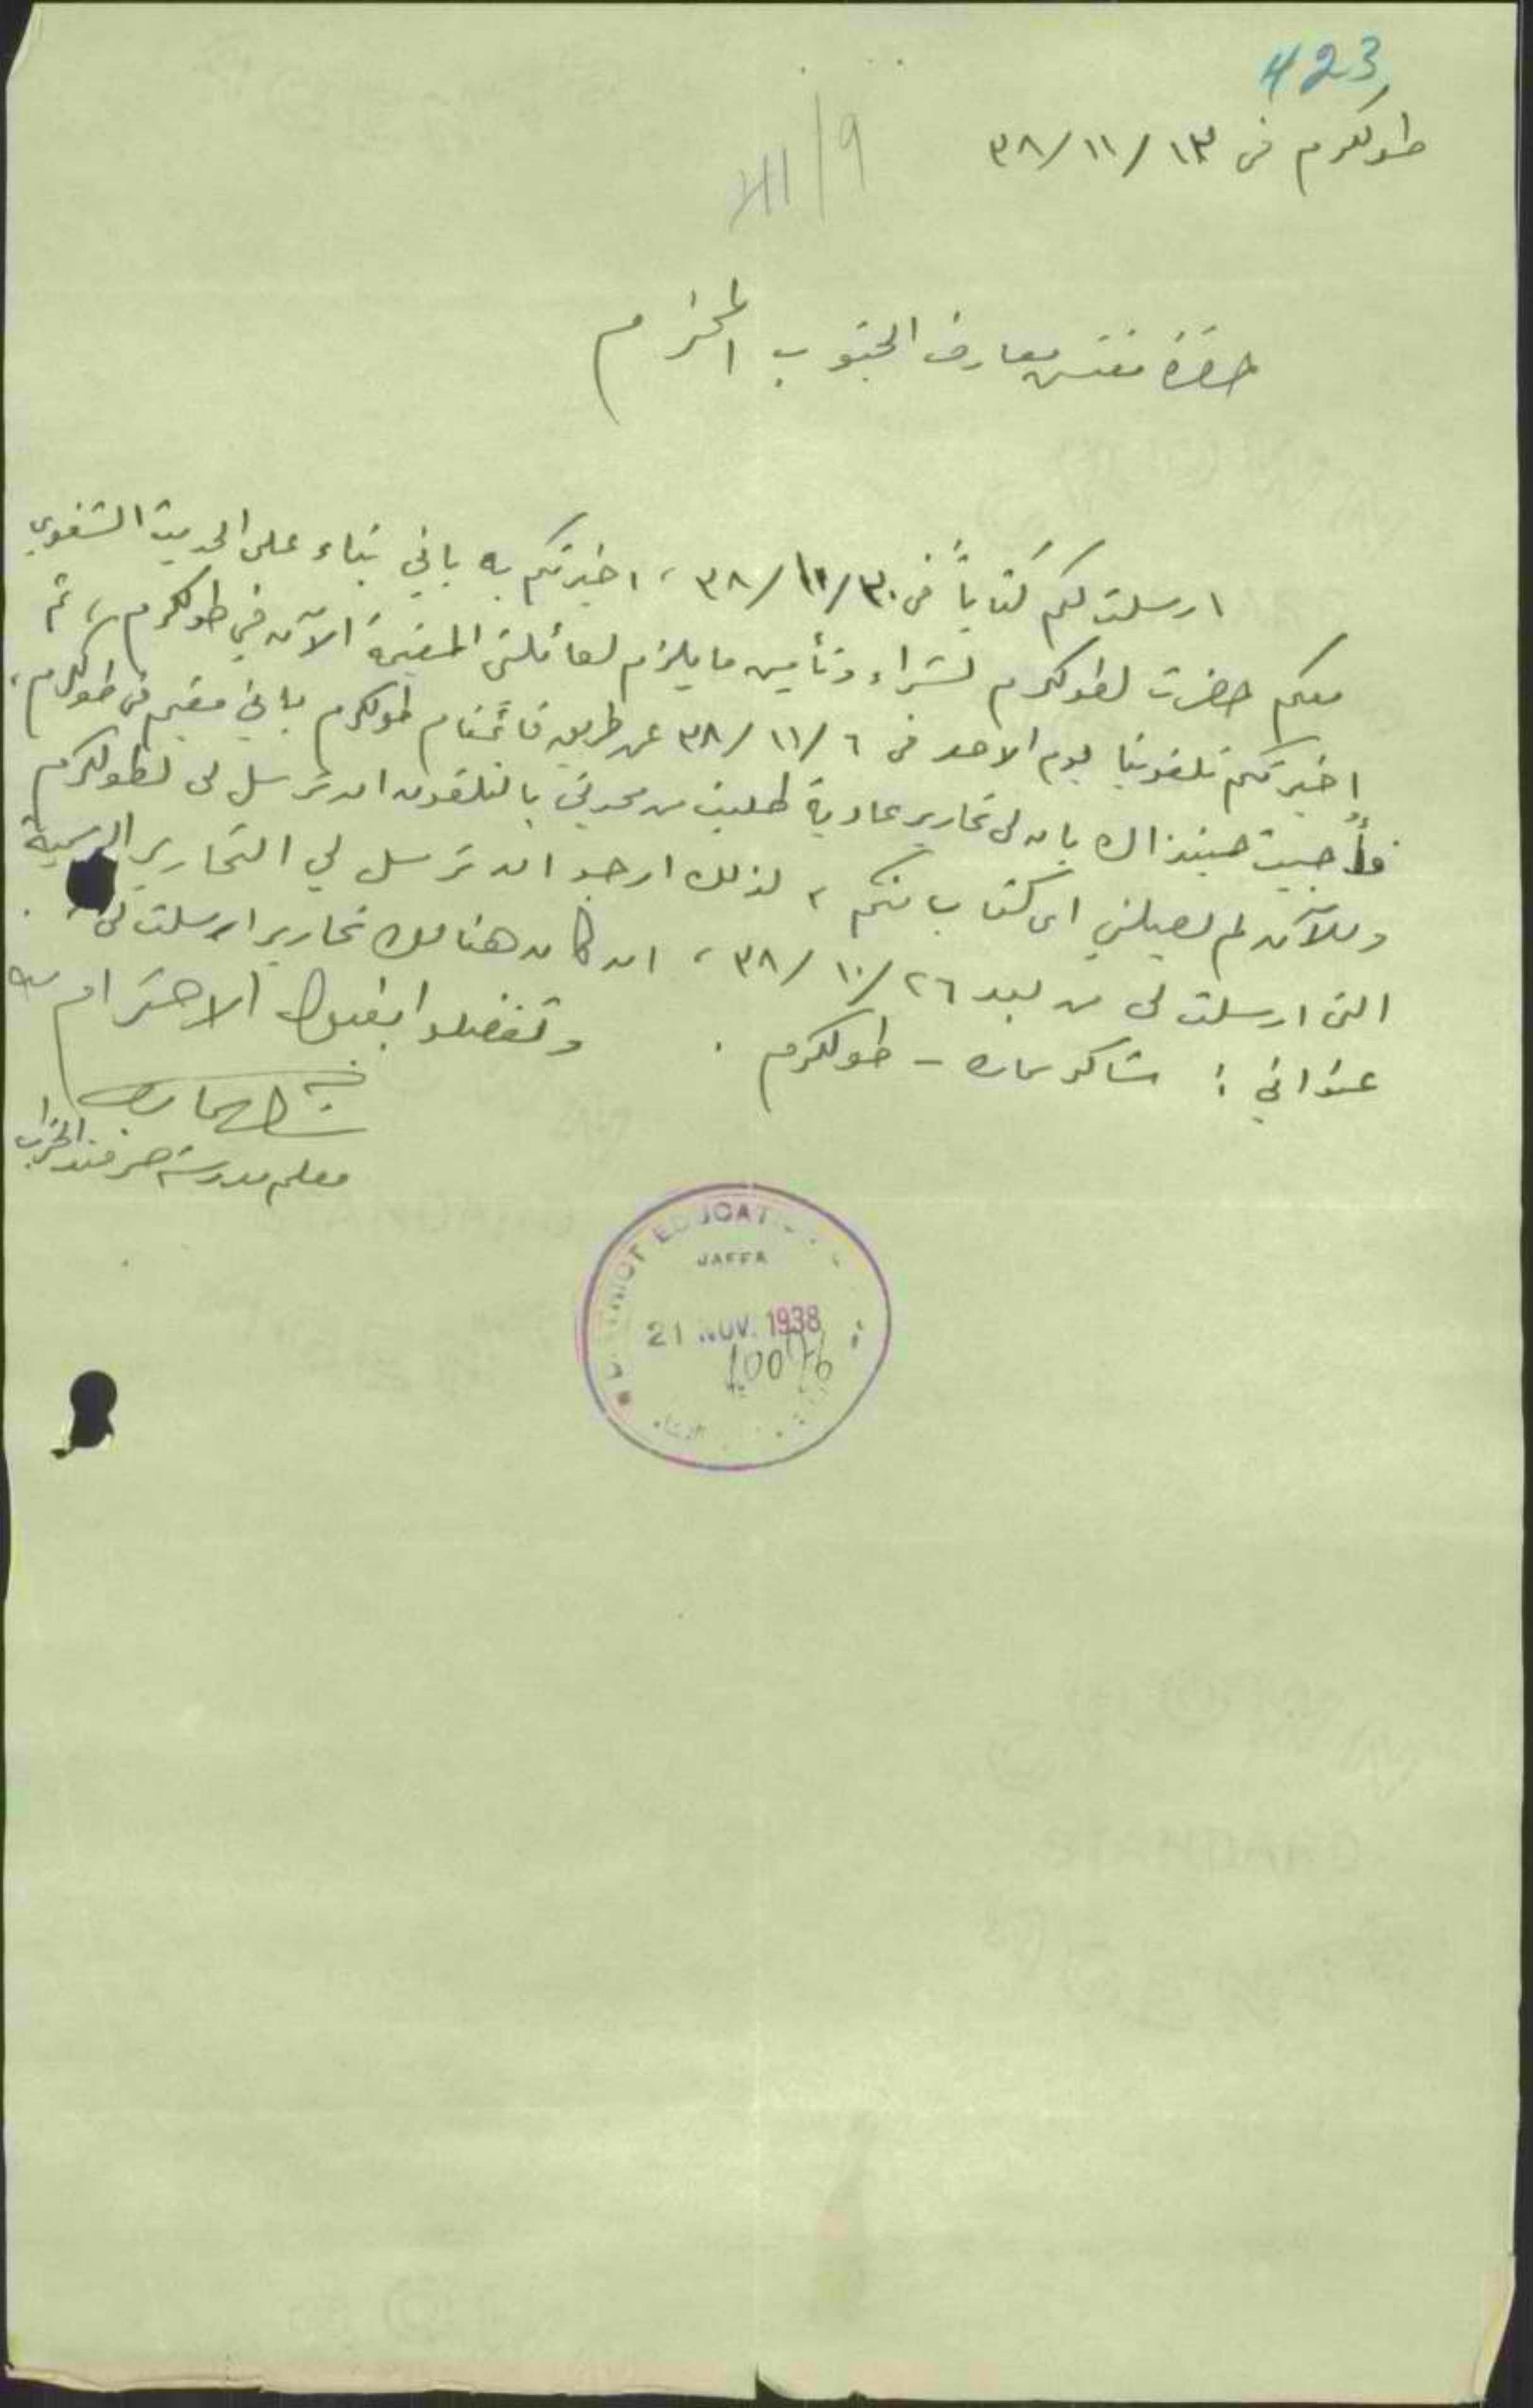 423
طولكرم في ١٣/١١/٣٨
XII/9
حضرة مفتش معارف الجنوب المحترم
ارسلت لكم كتاباً في ٣٠/١٠/٣٨، اخبرتكم به باني بناء على الحديث الشفوي
معكم حضرت لطولكرم لشراء وتأمين ما يلزم لعائلتي المقيمة الآن في طولكرم، ثم
اخبرتكم تلفونيا يوم الاحد في ٦/١١/٣٨ عن طريق قائمقام طولكرم باني مقيم في طولكرم،
فأجبت حينذاك بان لي تحارير عادية طلبت من محدثي بالتلفون ان ترسل لي لطولكرم
وللآن لم يصلني اي كتاب منكم، لذلك ارجو ان ترسل لي التحارير الرسمية
التي ارسلت لي من بعد ٢٦/١٠/٣٨، ان كان هنالك تحارير ارسلت لي.
عنواني: شاكر سماره - طولكرم. وتفضلوا بقبول الاحترام
شاكر سماره
معلم مدرسة صرفند الخراب
DISTRICT EDUCATION
JAFFA
21 NOV. 1938